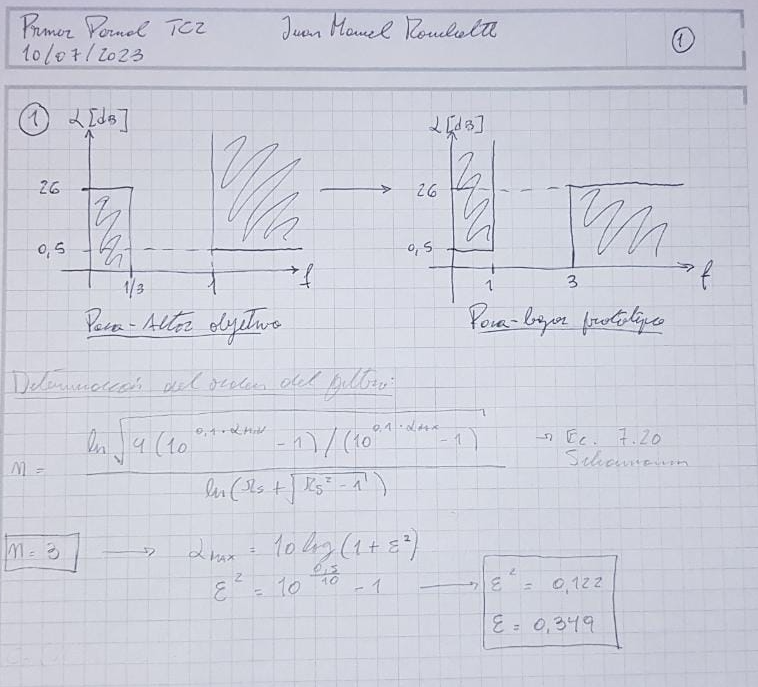 Primer Parcial TC2 Juan Manuel
10/07/2023
1
1 α [dB] α [dB]
26 26
0,5 0,5
1/3 1 f 1 3 f
Pasa-Altos objetivo Pasa-bajos prototipo
Determinación del orden del filtro:
n = ln √(4 (10^(0,1·αmin) - 1) / (10^(0,1·αmax) - 1)) / ln (Ωs + √(Ωs² - 1)) → Ec. 7.20
Schaumann
n = 3 → αmax = 10 log (1 + ε²)
ε² = 10^(0,5/10) - 1 → ε² = 0,122
ε = 0,349